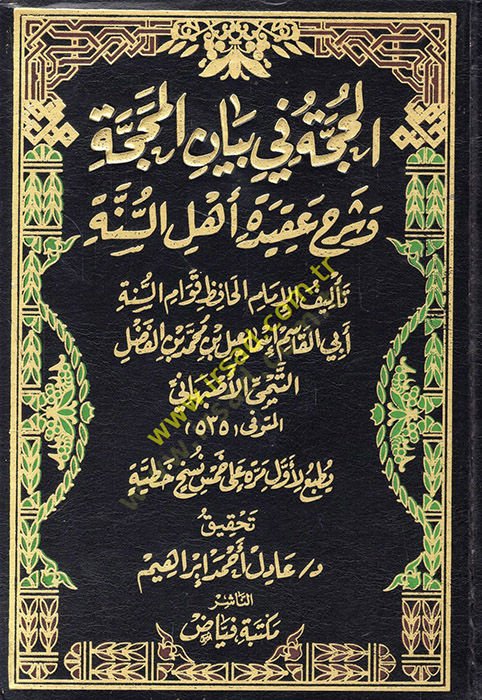 الحُجَّةُ فِي بَيَانِ المَحَجَّةِ
وَشَرْحُ عَقِيدَةِ أَهْلِ السُّنَّةِ
تأليف الإمام الحافظ قوام السنة
أبي القاسم إسماعيل بن محمد بن الفضل
التيمي الأصبهاني
المتوفى (٥٣٥)
يطبع لأول مرة على خمس نسخ خطية
تحقيق
د/ عادل أحمد إبراهيم
الناشر
مكتبة فياض